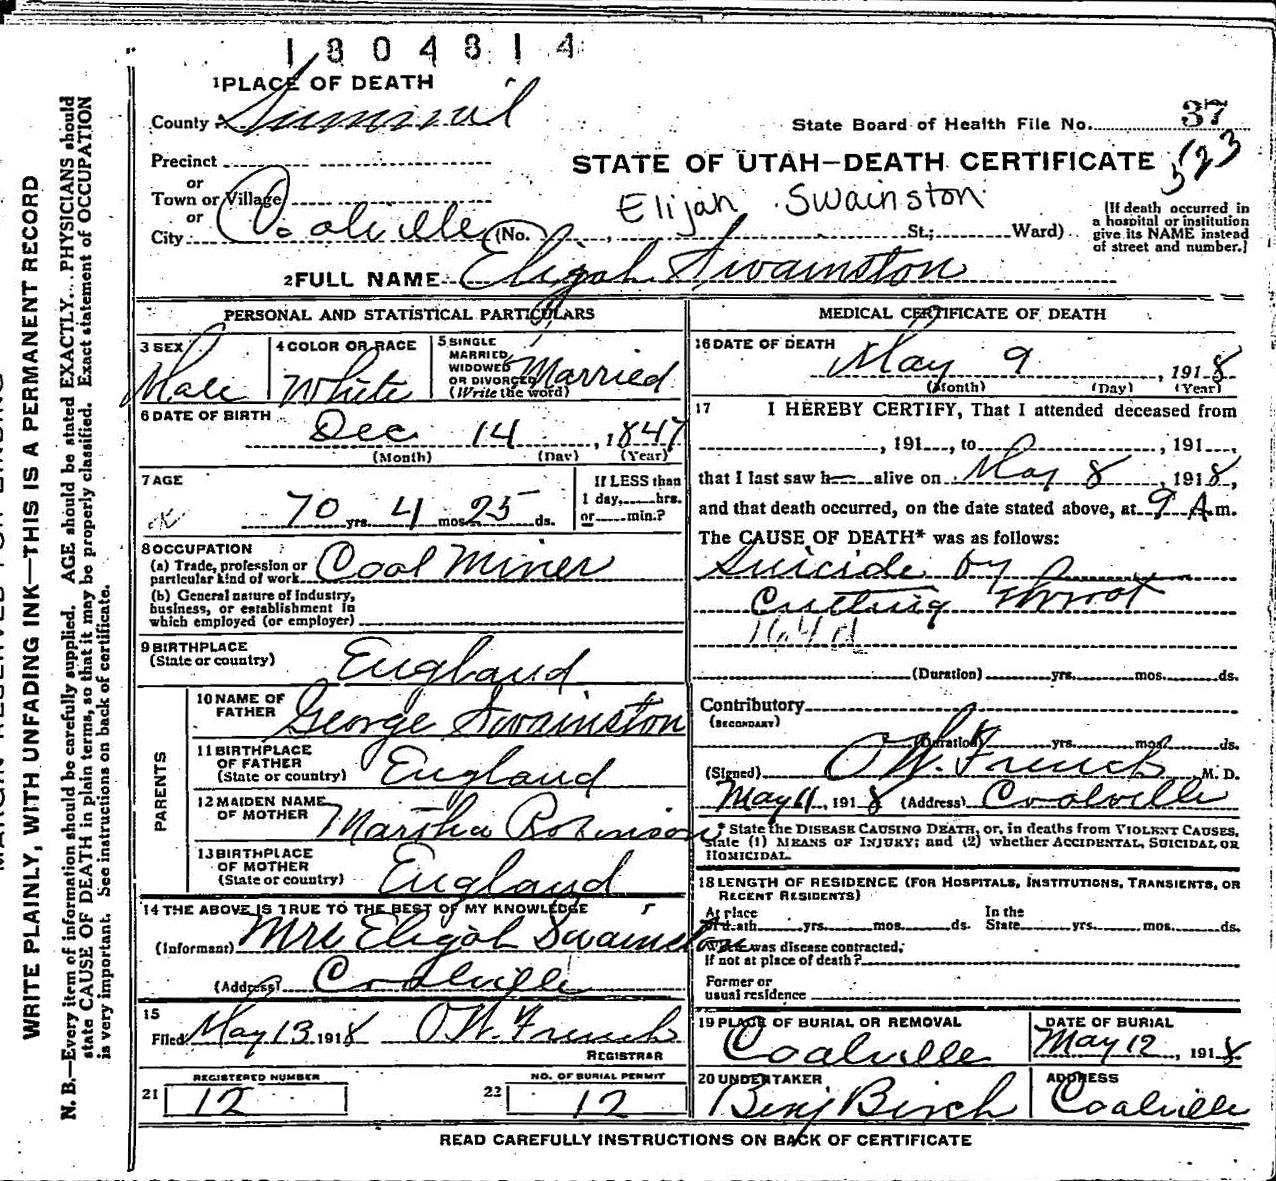 1804814
1 PLACE OF DEATH
County Summit
State Board of Health File No. 37
523
Precinct
STATE OF UTAH—DEATH CERTIFICATE
or
Town or Village
Elijah Swainston
or
City Coalville (No. St.; Ward)
(If death occurred in
a hospital or institution
give its NAME instead
of street and number.]
2 FULL NAME Elijah Swainston
PERSONAL AND STATISTICAL PARTICULARS
3 SEX
Male
4 COLOR OR RACE
White
5 SINGLE
MARRIED
WIDOWED
OR DIVORCED
(Write the word)
Married
6 DATE OF BIRTH
Dec 14, 1847
(Month) (Day) (Year)
7 AGE
70 yrs. 4 mos. 25 ds.
If LESS than
1 day, hrs.
or min.?
8 OCCUPATION
(a) Trade, profession or
particular kind of work Coal Miner
(b) General nature of industry,
business, or establishment in
which employed (or employer)
9 BIRTHPLACE
(State or country) England
PARENTS
10 NAME OF
FATHER George Swainston
11 BIRTHPLACE
OF FATHER
(State or country) England
12 MAIDEN NAME
OF MOTHER Martha Robinson
13 BIRTHPLACE
OF MOTHER
(State or country) England
14 THE ABOVE IS TRUE TO THE BEST OF MY KNOWLEDGE
(Informant) Mrs Elijah Swainston
(Address) Coalville
15
Filed May 13 1918 O W. French
REGISTRAR
21
REGISTERED NUMBER
12
22
NO. OF BURIAL PERMIT
12
MEDICAL CERTIFICATE OF DEATH
16 DATE OF DEATH
May 9, 1918
(Month) (Day) (Year)
17 I HEREBY CERTIFY, That I attended deceased from
, 191 , to , 191 ,
that I last saw h alive on May 8, 1918,
and that death occurred, on the date stated above, at 9 A.m.
The CAUSE OF DEATH* was as follows:
Suicide by
Cutting throat
(Duration) yrs. mos. ds.
Contributory
(SECONDARY)
(Duration) yrs. mos. ds.
(Signed) O W. French, M. D.
May 11, 1918 (Address) Coalville
* State the DISEASE CAUSING DEATH, or, in deaths from VIOLENT CAUSES,
state (1) MEANS OF INJURY; and (2) whether ACCIDENTAL, SUICIDAL OR
HOMICIDAL.
18 LENGTH OF RESIDENCE (FOR HOSPITALS, INSTITUTIONS, TRANSIENTS, OR
RECENT RESIDENTS)
At place
of death yrs. mos. ds.
In the
State yrs. mos. ds.
Where was disease contracted,
if not at place of death?
Former or
usual residence
19 PLACE OF BURIAL OR REMOVAL
Coalville
DATE OF BURIAL
May 12, 1918
20 UNDERTAKER
Benj Birch
ADDRESS
Coalville
READ CAREFULLY INSTRUCTIONS ON BACK OF CERTIFICATE
WRITE PLAINLY, WITH UNFADING INK—THIS IS A PERMANENT RECORD
N. B.—Every item of information should be carefully supplied. AGE should be stated EXACTLY. PHYSICIANS should
state CAUSE OF DEATH in plain terms, so that it may be properly classified. Exact statement of OCCUPATION
is very important. See instructions on back of certificate.